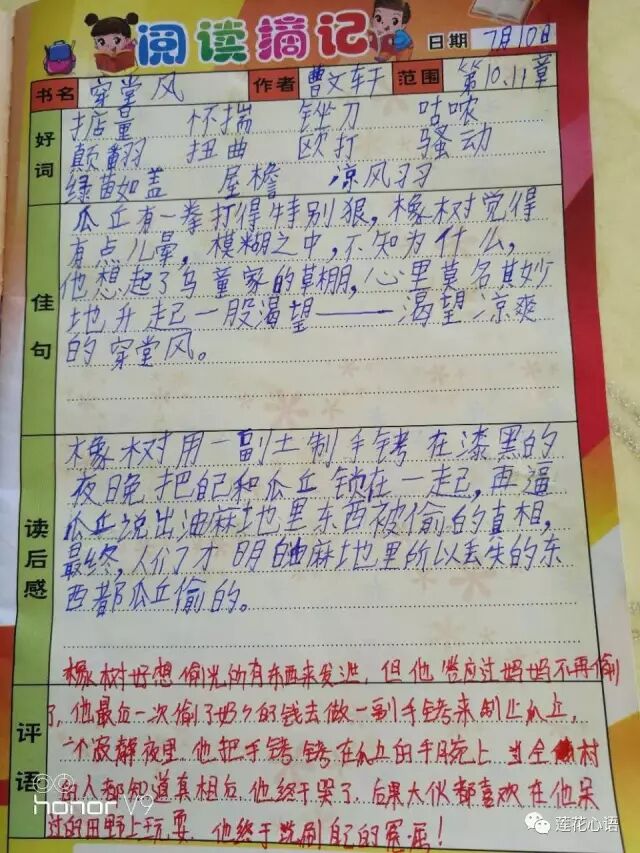 阅读摘记
日期 7月10日
书名 穿堂风 作者 曹文轩 范围 第10.11章
好词
掂量 怀揣 锉刀 咕哝
颠翻 扭曲 殴打 骚动
绿苗如盖 屋檐 凉风习习
佳句
瓜丘有一拳打得特别狠,橡树觉得
有点儿晕,模糊之中,不知为什么,
他想起了乌童家的草棚,心里莫名其妙
地升起一股渴望——渴望凉爽
的穿堂风。
读后感
橡树用一副土制手铐在漆黑的
夜晚把自己和瓜丘锁在一起,再逼
瓜丘说出油麻地里东西被偷的真相,
最终,人们才明白油麻地里所以丢失的东
西都瓜丘偷的。
评语
橡树好想偷光所有东西来发泄,但他答应过妈妈不再偷
了,他最后一次偷了奶奶的钱去做一副手铐来制止瓜丘。
一个寂静夜里,他把手铐铐在瓜丘的手腕上,当全村
的人都知道真相后他终于哭了,后果大伙都喜欢在他呆
过的田野上玩耍,他终于洗刷自己的冤屈!
honor V9
莲花心语